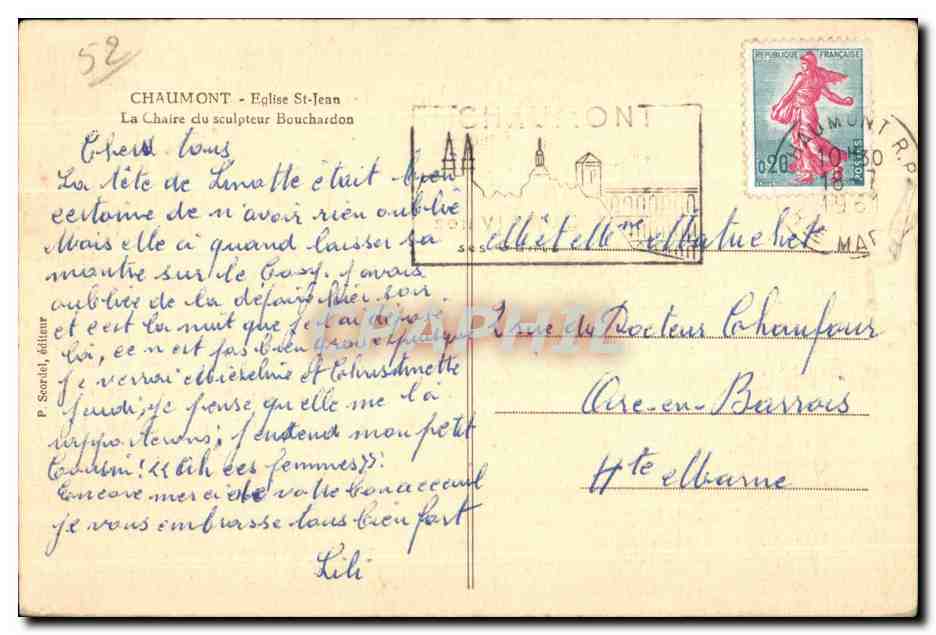 52
CHAUMONT - Eglise St-Jean
La Chaire du sculpteur Bouchardon
Chers tous
La tête de Linotte était bien
certaine de n'avoir rien oublié
Mais elle a quand laisser sa
montre sur le Cosy. J'avais
oubliée de la défaire hier soir
et c'est la nuit que je l'ai déposé
là, ce n'est pas bien grave puisque
je verrai Micheline et Christinette
jeudi, je pense, qu'elle me la
rapporterons; j'entend mon petit
Cousin! "Ah ces femmes"!
Encore merci de votre bon acceuil
je vous embrasse tous bien fort
Lili
P. Scordel, éditeur
CHAUMONT
SON
SES
REPUBLIQUE FRANÇAISE
0,20
POSTES
CHAUMONT R.P.
10H30
18-7
196
MAR
M et Mme Matuchet
2 rue du Docteur Chaufour
Arc-en-Barrois
Hte Marne
CPAPHIL